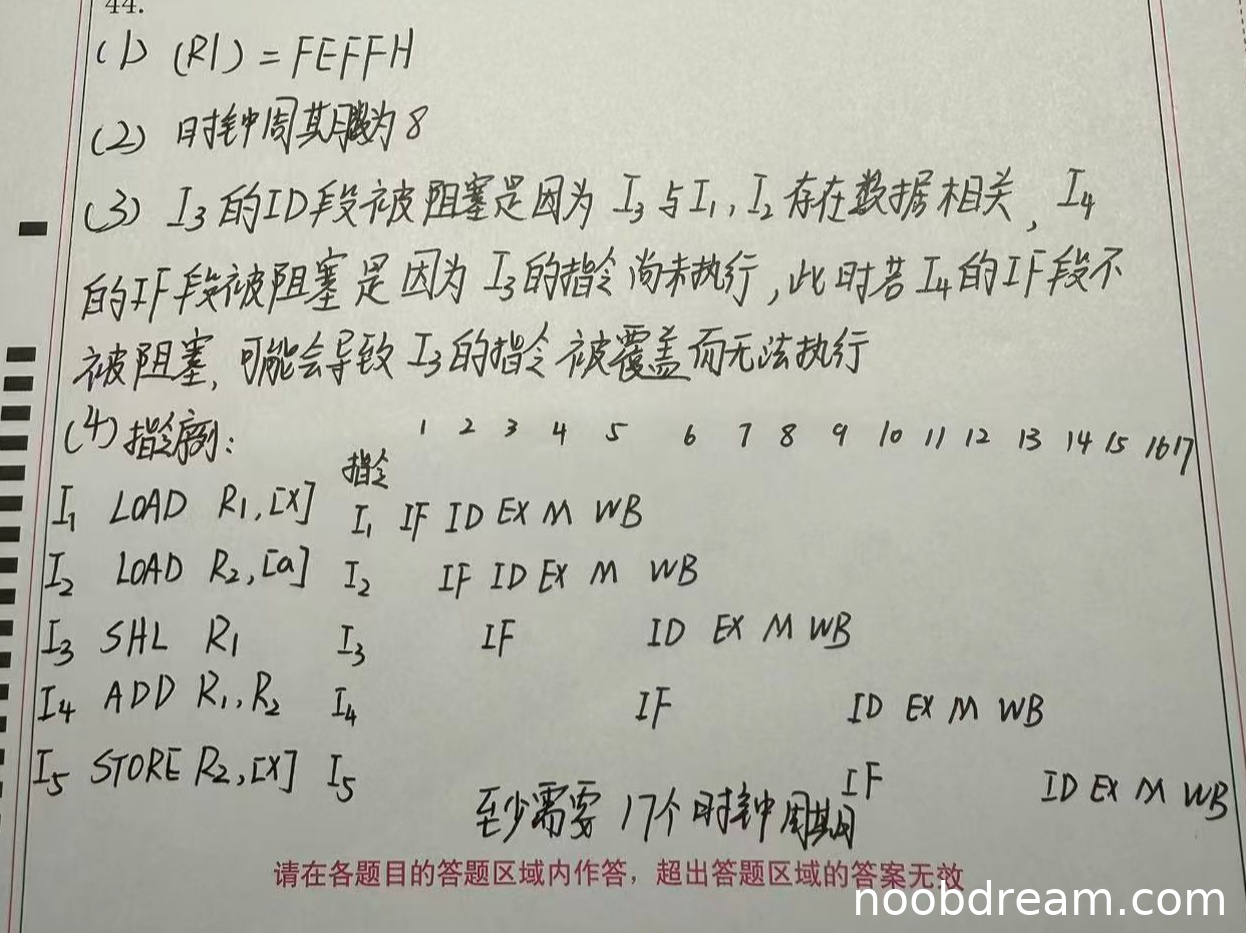 44.
(1) (R1) = FEFFH
(2) 时钟周期数为8
(3) I₃的ID段被阻塞是因为 I₃与I₁, I₂存在数据相关, I₄
的IF段被阻塞是因为 I₃的指令尚未执行, 此时若I₄的IF段不
被阻塞, 可能会导致 I₃的指令被覆盖而无法执行
(4) 指令序列: 1 2 3 4 5 6 7 8 9 10 11 12 13 14 15 16 17
指令
I₁ LOAD R₁,[X] I₁ IF ID EX M WB
I₂ LOAD R₂,[a] I₂ IF ID EX M WB
I₃ SHL R₁ I₃ IF ID EX M WB
I₄ ADD R₁,R₂ I₄ IF ID EX M WB
I₅ STORE R₂,[X] I₅ IF ID EX M WB
至少需要 17个时钟周期
请在各题目的答题区域内作答，超出答题区域的答案无效
noobdream.com